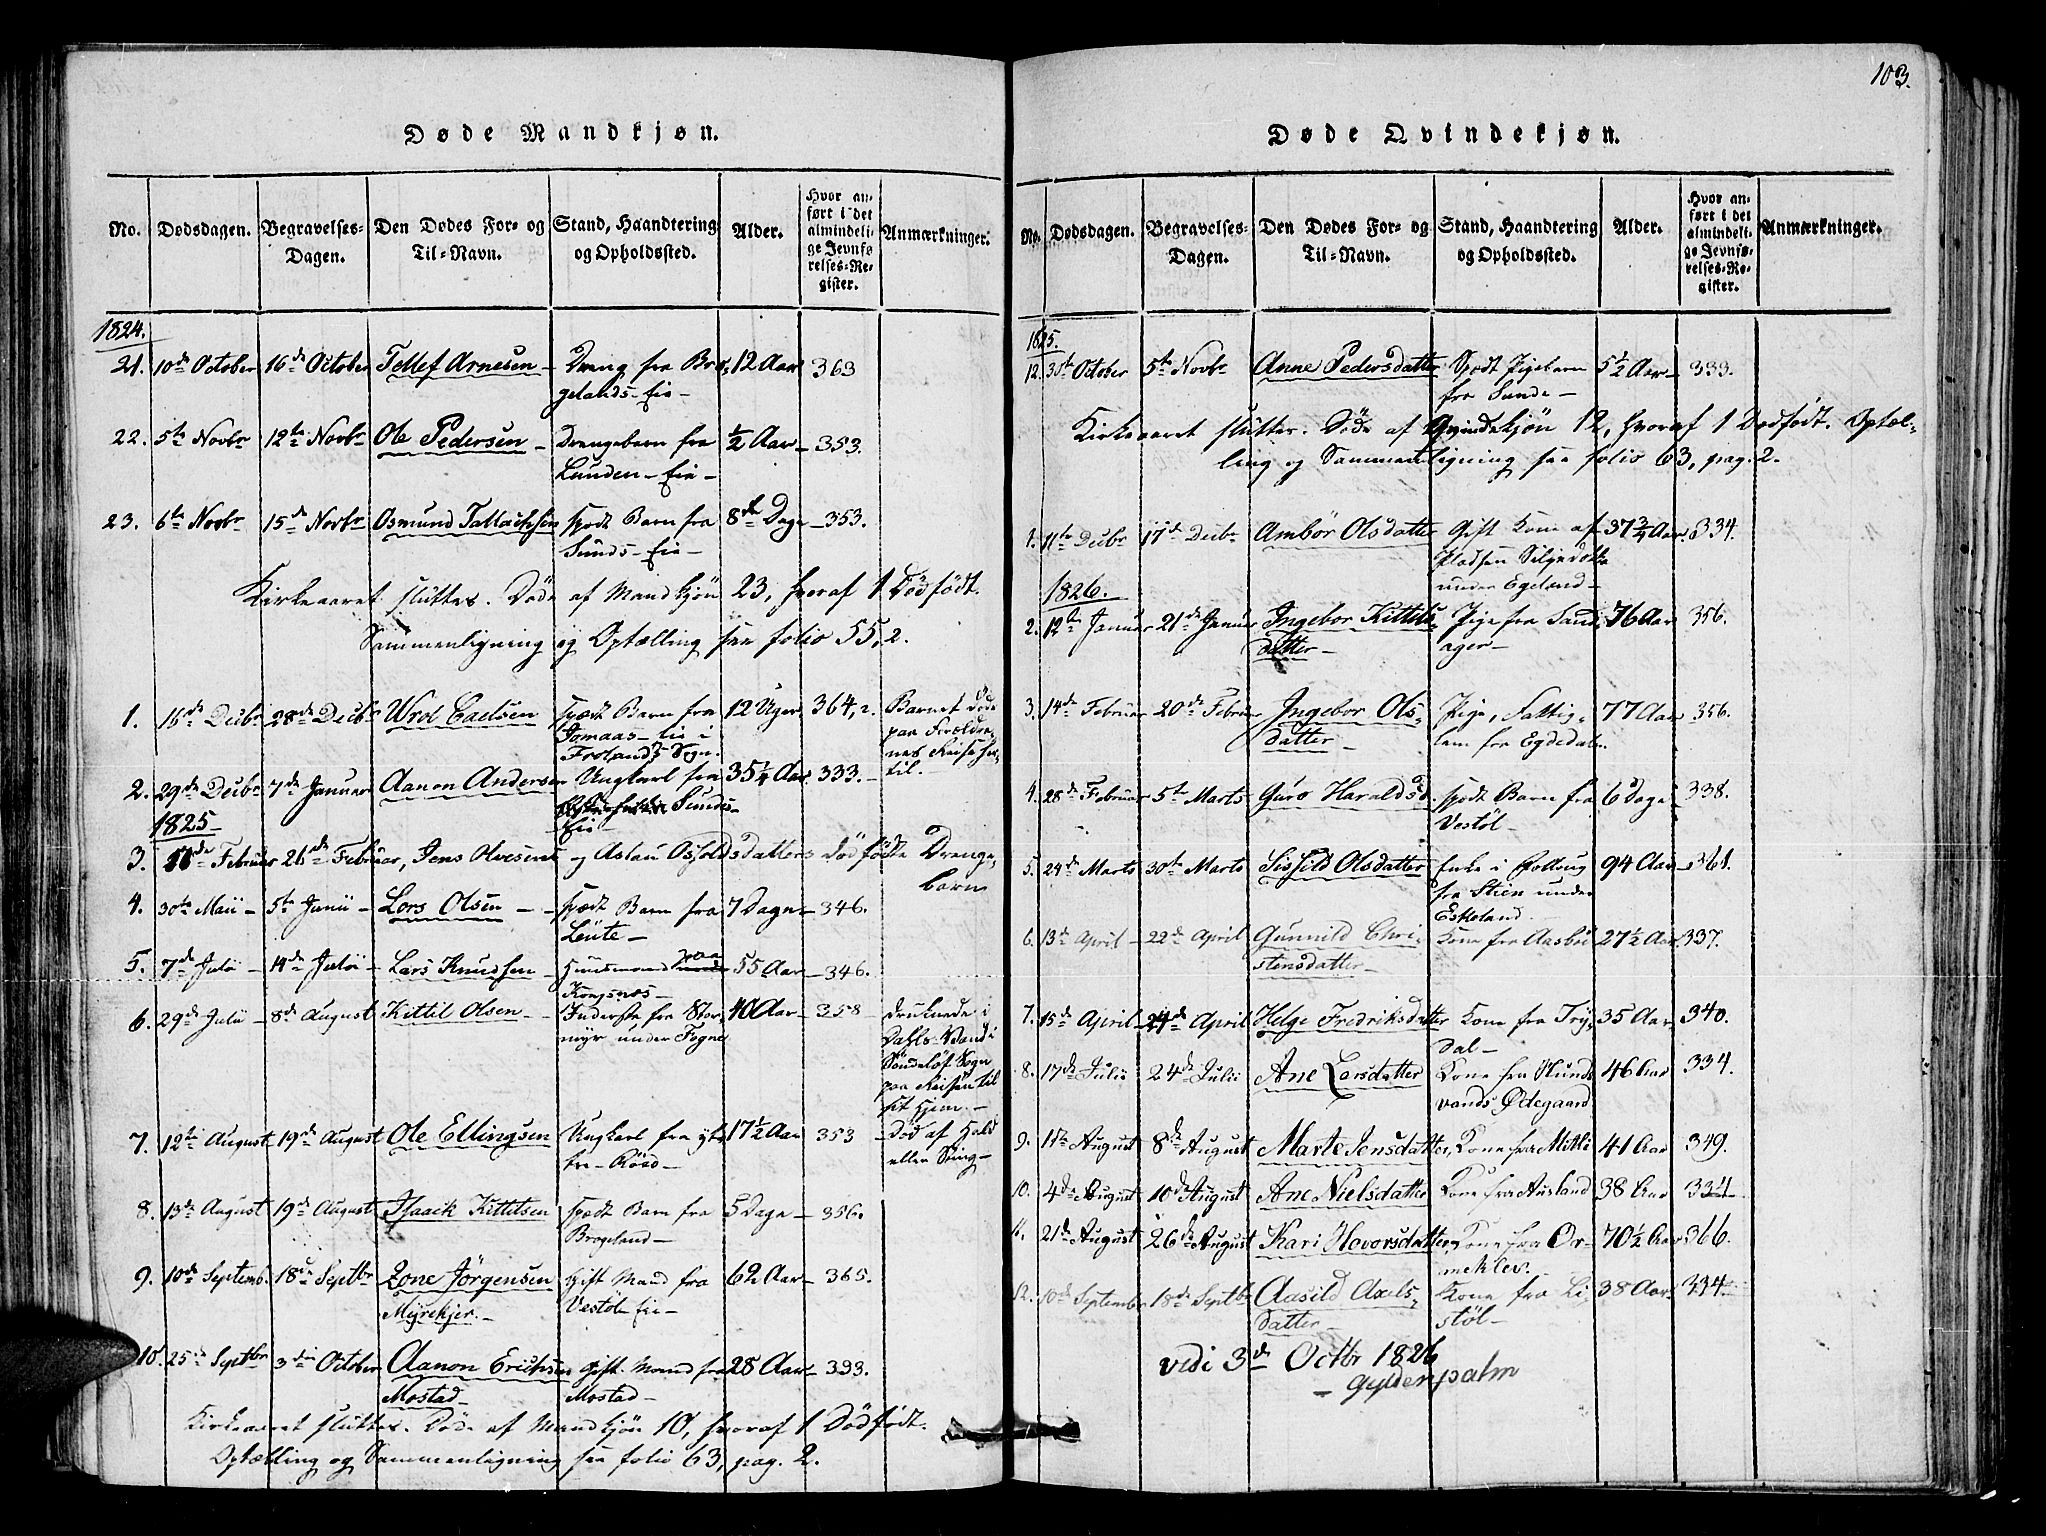 Døde Mandkjøn.
No. Dødsdagen. Begravelses-Dagen. Den Dødes For- og Til-Navn. Stand, Haandtering og Opholdssted. Alder. Hvor anført i det almindelige Jevnførelses-Register. Anmærkninger.
1824.
21. 10de October 16de October Tellef Arnesen Dreng fra Bro- 12 Aar 363
gelands-Eie
22. 5te Novbr 12te Novbr Ole Pedersen Drengebarn fra ½ Aar 353.
Lunden-Eie
23. 6te Novbr 15de Novbr Osmund Tallachsen spædt Barn fra 8te Dage 353.
Sunds-Eie
Kirkeaaret sluttes. Døde af Mandkjøn 23, hvoraf 1 Dødfødt.
Sammenligning og Optælling see folio 55, 2.
1. 16de Decbr 28de Decbr Wrol spædt Barn fra 12 Uger 364, 2. Barnet døde
Eie i paa Forældre-
Frolands Sogn. nes Reise her-
til.
2. 29de Decbr 7de Januar Aanon Andersen Ungkarl fra 35¼ Aar 333.
Sunds-
Eie
1825
3. Februar 26de Februar, Jens Olvesens og Aslau Osfoldsdatters dødfødte Drenge-
barn
4. 30te Mai 5te Junii Lars Olsen spædt Barn fra 7 Dage 346.
Leite
5. 7de Julii 14de Julii Lars Knudsen Huusmand fra 55 Aar 346.
Kongsnæs
6. 29de Julii 8de August Kittil Olsen Inderste fra Stor- 40 Aar 358 Druknede i
myr under Fogne Dahls-Vand i
Søndeløf Sogn
paa Reisen til
sit Hjem.
7. 12te August 19de August Ole Ellingsen Ungkarl fra yt- 17½ Aar 353 Død af Hald
tre-Røed eller Sting
8. 13de August 19de August Isaack Kittilsen spædt Barn fra 5 Dage 356.
Brogeland
9. 10de Septemb. 18de Septbr Zone Jörgensen Gift Mand fra 62 Aar 365.
Myrekjer. Vestøl Eie
10. 25de Septbr 3die October Aanon Erichsen Gift Mand fra 28 Aar 393.
Mostad Mostad
Kirkeaaret sluttes. Døde af Mandkjøn 10, hvoraf 1 Dødfødt.
Optælling og Sammenligning see folio 63, pag. 2.
103.
Døde Qvindekjøn.
No. Dødsdagen. Begravelses-Dagen. Den Dødes For- og Til-Navn. Stand, Haandtering og Opholdssted. Alder. Hvor anført i det almindelige Jevnførelses-Register. Anmærkninger.
1825.
12. 30te October 5te Novbr Anne Pedersdatter Spædt Pigebarn 5½ Aar 333.
fra Sunde
Kirkeaaret sluttes. Døde af Qvindekjön 12, hvoraf 1 Dødfødt. Optæl-
ling og Sammenligning see folio 63, pag. 2.
1. 11te Decbr 17de Decbr Ambör Olsdatter Gift Kone af 37¾ Aar. 334.
Pladsen
under Egeland
1826.
2. 12te Januar 21de Januar Ingebor Kittils- Pige fra Sand- 76 Aar 356.
datter ager
3. 14de Februar 20de Februar Ingebor Ols- Pige, Fattig- 77 Aar 356.
datter lem fra Egdedalen
4. 28de Februar 5te Marts Guro Haraldsd. spædt Barn fra 6 Dage 338.
Vestøl
5. 24de Marts 30te Marts Sisfild Olsdatter Enke i Fattig 94 Aar 361.
fra Stien under
Eskeland.
6. 13de April 22de April Gunnild Chri- Kone fra Aasbøe 27½ Aar. 337.
stensdatter
7. 15de April 24de April Helge Fredriksdatter Kone fra Try- 35 Aar 340.
dal
8. 17de Julii 24de Julii Ane Larsdatter Kone fra Hunds- 46 Aar 334.
vands Ødegaard
9. 1ste August 8de August Marte Jensdatter, Kone fra Mitli 41 Aar 349.
10. 4de August 10de August Ane Nielsdatter Kone fra Ausland 38 Aar 334
11. 21de August 26de August Kari Hovorsdatter, Kone fra Or- 70½ Aar 366.
meklev.
12. 10de September 18de Septbr Aasild Axels- Kone fra Li- 38 Aar 334
datter støl
vidi 3de Octbr 1826
Gylderpalm